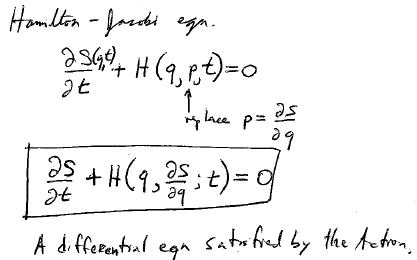 Hamilton - Jacobi eqn.
∂S(q,t)/∂t + H(q,p,t)=0
↑
replace p = ∂S/∂q
∂S/∂t + H(q, ∂S/∂q ; t) = 0
A differential eqn satisfied by the Action.